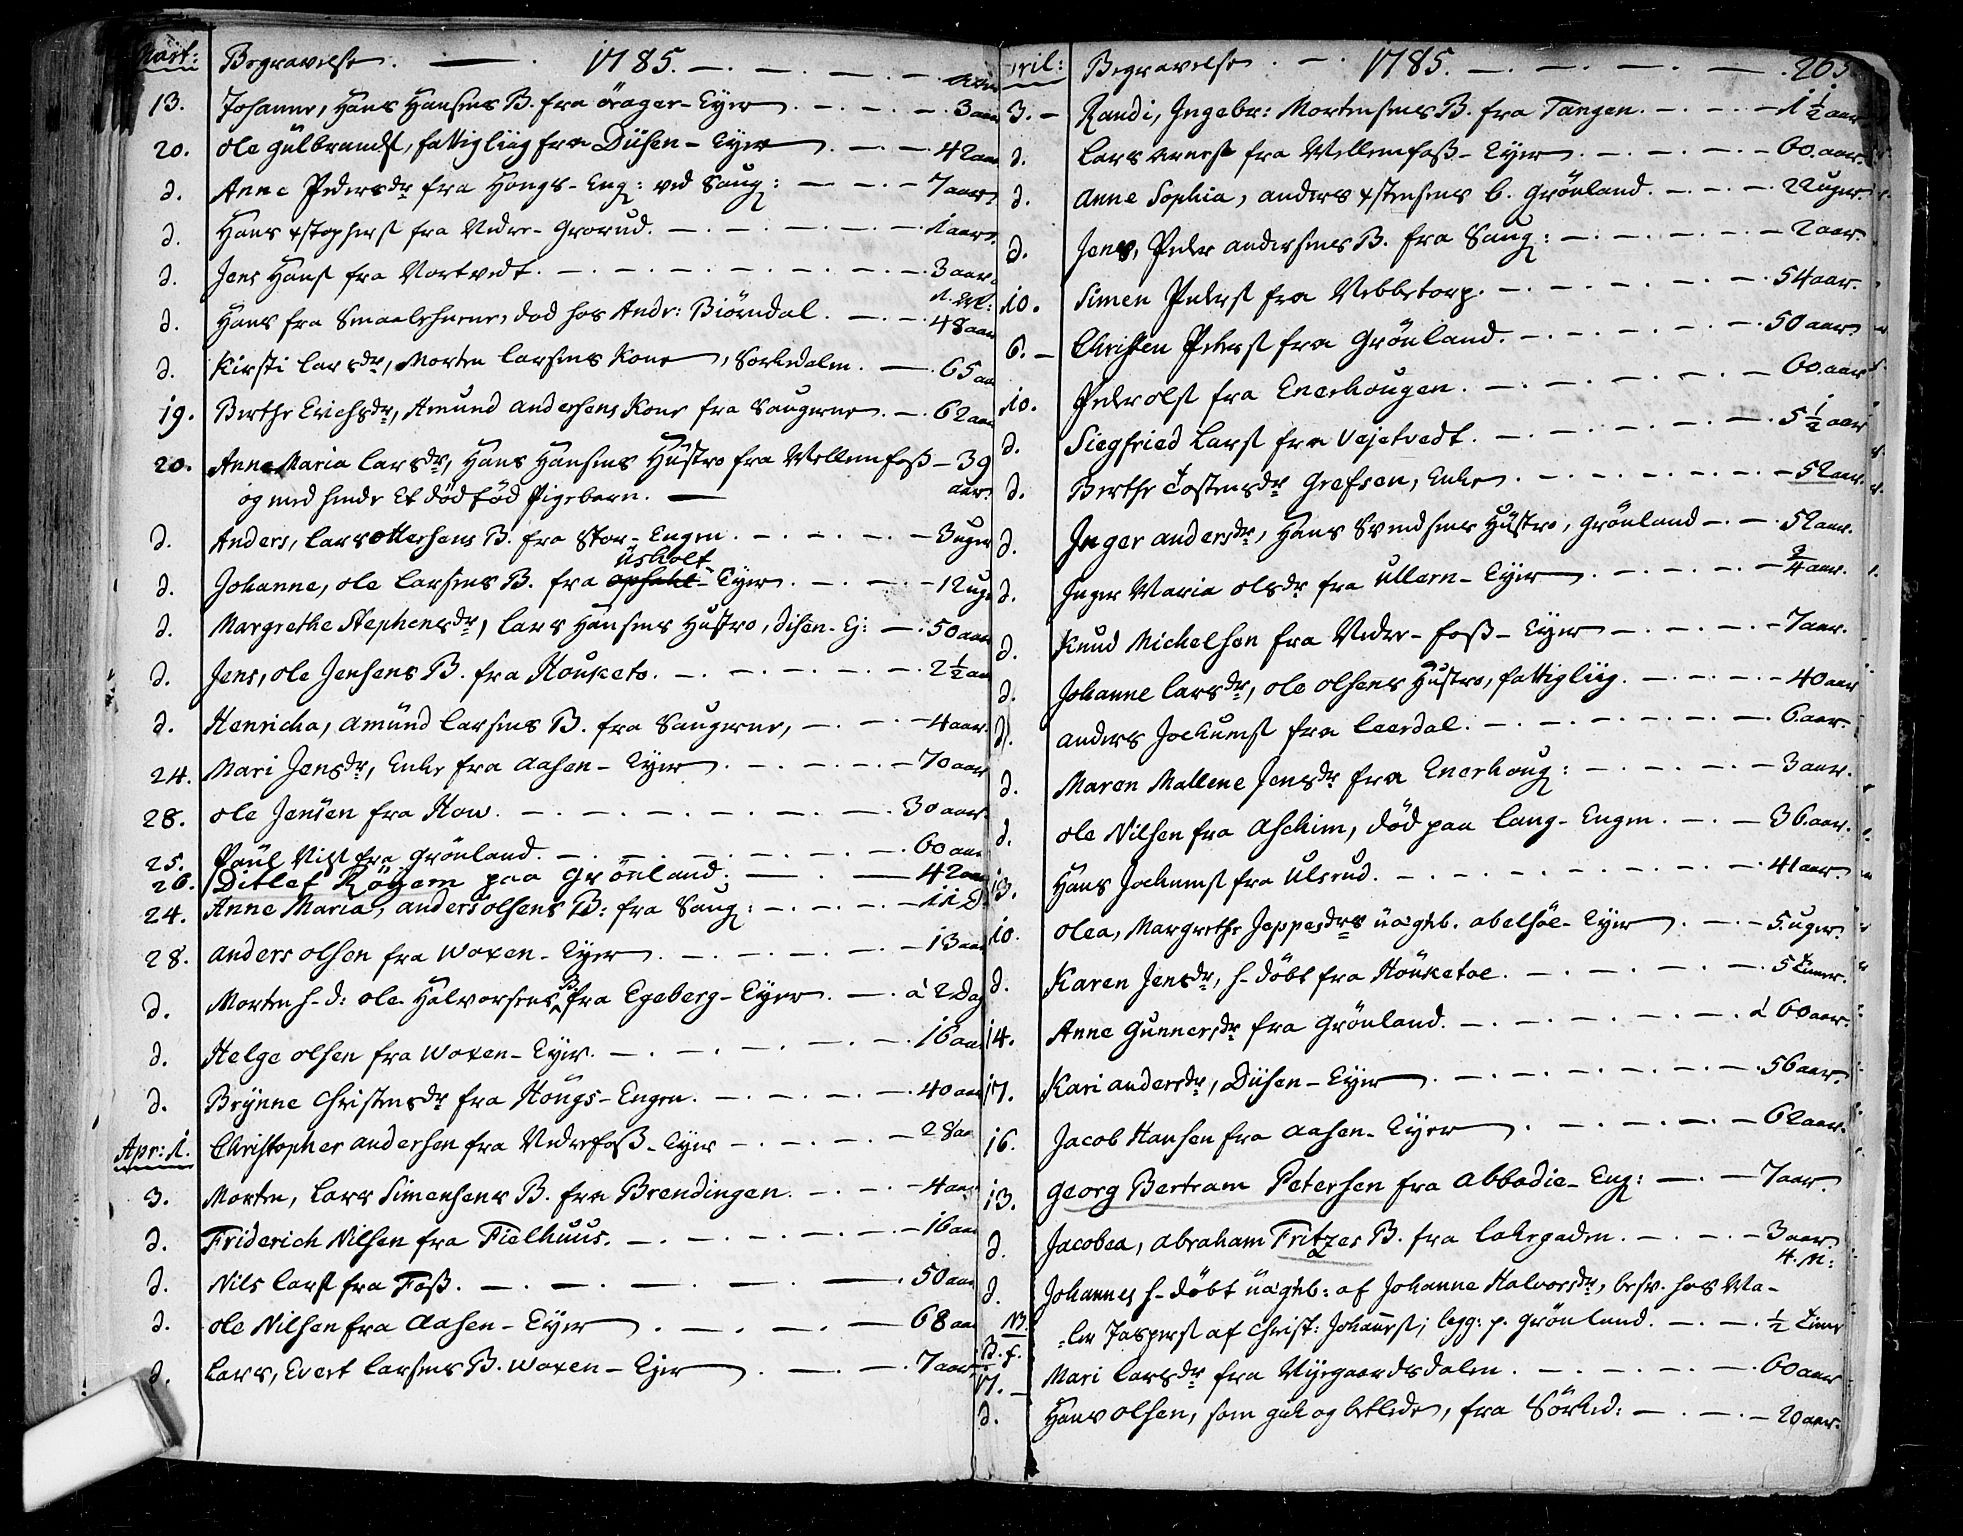 Mart: Begravelse. — 1785. — . — . — . —
13. Johanne, Hans Hansens B. fra örager-Eyer . — . — . 3 aar
20. ole gulbrands, fattigliig fra Diisen-Eyer . — . — 42 aar
d. Anne Pedersdr fra Hougs-Eng: ved Saug: — . — . — 7 aar
d. Hans xstophers fra Nedre-Grorud. — . — . — . — . — 1 aar.
d. Jens Hans fra Nortvedt. — . — . — . — . — . — 3 aar.
1. M:
d. Hans fra Smaalehnene, død hos Andr: Biørndal . — . — 48 aar
d. Kirsti Larsdr, Morten Larsens Kone, Sørkedalen. — . 65 aar
19. Berthe Erichsdr, Amund Andersens Kone fra Saugerne . — . 62 aar
20. Anne Maria Larsdr, Hans Hansens Hustro fra Mellemfoss — 39
og med hende Et dödföd Pigebarn. — aar
d. Anders, Lars ottersens B. fra Stor-Engen . — . — . — 3 uger
üsholt
d. Johanne, ole Larsens B. fra -Eyer . — . — . — 12 uge
d. Margrethe Stephensdr, Lars Hansens Hustro, Disen-Ej: — . 50 aar
d. Jens, ole Jensens B. fra Houketo. — . — . — . — 2 1/2 aar
d. Henricha, Amünd Larsens B. fra Saugerne, — . — . — 4 aar.
24. Mari Jensdr, Enke fra Aasen-Eyer . — . — . — 70 aar
28. ole Jensen fra How. — . — . — . — . — 30 aar.
25. Paül Nils fra Grönland. — . — . — . — 60 aar
26. Ditlef Röyem paa Grönland. — . — 42 aar
24. Anne Maria, anders olsens B: fra Saug: — . — . — 11 D
28. anders olsen fra Woxen-Eyer . — . — . — . — 13 aar
d. Morten h-d: ole Halvorsens B. fra Egeberg-Eyer. — . à 2 Dag
d. Helge olsen fra Woxen-Eyer. — . — . — . — 16 aar
d. Brynne Christensdr fra Hougs-Engen. — . — . — . 40 aar
Apr: 1. Christopher andersen fra Nedrefoss-Eyer — . — . — 28 aar
3. Morten, Lars Simensens B. fra Brendingen. — . — . — 4 aar
d. Friderich Nilsen fra Fielhuus. — . — . — . — 16 aar
d. Nils Lars fra Foss. — . — . — . — . 50 aar
d. ole Nilsen fra Aasen-Eyer . — . — . — 68 aar
d. Lars, Evert Larsens B. Woxen-Ejer . — . — . 7 aar
ril: Begravelse . — . 1785. — . — . — . — . 265
3. — Randi, Ingebr: Mortensens B. fra Tangen. — . — . — 1 1/2 aar
d. Lars arnes fra Mellemfoss-Eyer . — . — . — 60. aar.
d. Anne Sophia, anders xstensens b. Grönland. — . — . — 22 uger.
d. Jens, Peder andersens B. fra Saug: — . — . — . — 2 aar.
10. Simen Peders fra Nebbetorp. — . — . — . — . 54 aar.
6. — Christen Peders fra Grönland. — . — . — . — . 50 aar
10. Peder ols fra Enerhougen. — . — . — . — . 60. aar
d. Siegfried Lars fra Vejetvedt. — . — . — . — 5 1/2 aar
d. Berthe Tostensdr Grefsen, Enke . — . — . — . — 52 aar.
d. Inger andersdr, Hans Svendsens Hustro, Grönland — . — . 52 aar.
d. Inger Maria olsdr fra Ullern-Eyer . — . — . — 3/4 aar.
d. Knud Michelsen fra Nedre-Foss-Eyer — . — . — . 7 aar.
d. Johanne Larsdr, ole olsens Hustro, fattigliig. — . — . — 40 aar
d. anders Jochums fra Leerdal. — . — . — . — . — 6. aar.
d. Maren Mallene Jensdr fra Enerhoug: — . — . — . 3 aar.
d. ole Nilsen fra Aschim, död paa Lang-Engen. — . — 36. aar.
13. Hans Jochums fra Ulsrud. — . — . — . — . — . 41 aar.
10. olea, Margrethe Jeppesdrs uägteb. abelsöe-Eyer . — . — 5. uger.
d. Karen Jensdr, h-döbt fra Houketoe. — . — . — . — 5 Timer.
14. Anne Gunnersdr fra Grönland. — . — . — . — . — á 60 aar.
17. Kari andersdr, Diisen-Eyer . — . — . — . — . 56 aar.
16. Jacob Hansen fra Aasen-Eyer . — . — . — . — 62 aar.
13. Georg Bertram Petersen fra Abbadie-Eng: — . — 7 aar.
d. Jacobea, Abraham Fritzes B. fra Lakegaden. — . — . — 3 aar.
4. M:
d. Johannes h-döbt uägteb: af Johanne Halvorsdr, besv. hos Ma-
NB. -ler Jaspers af Christ: Johanns; begg: p. Grönland. — . — 1/2 Time
D. f.
17. — Mari Larsdr fra Nyegaardsdalen. — . — . — . 60 aar
d. Hans olsen, som gik og betlede, fra Sörked: — . — . — 20 aar.